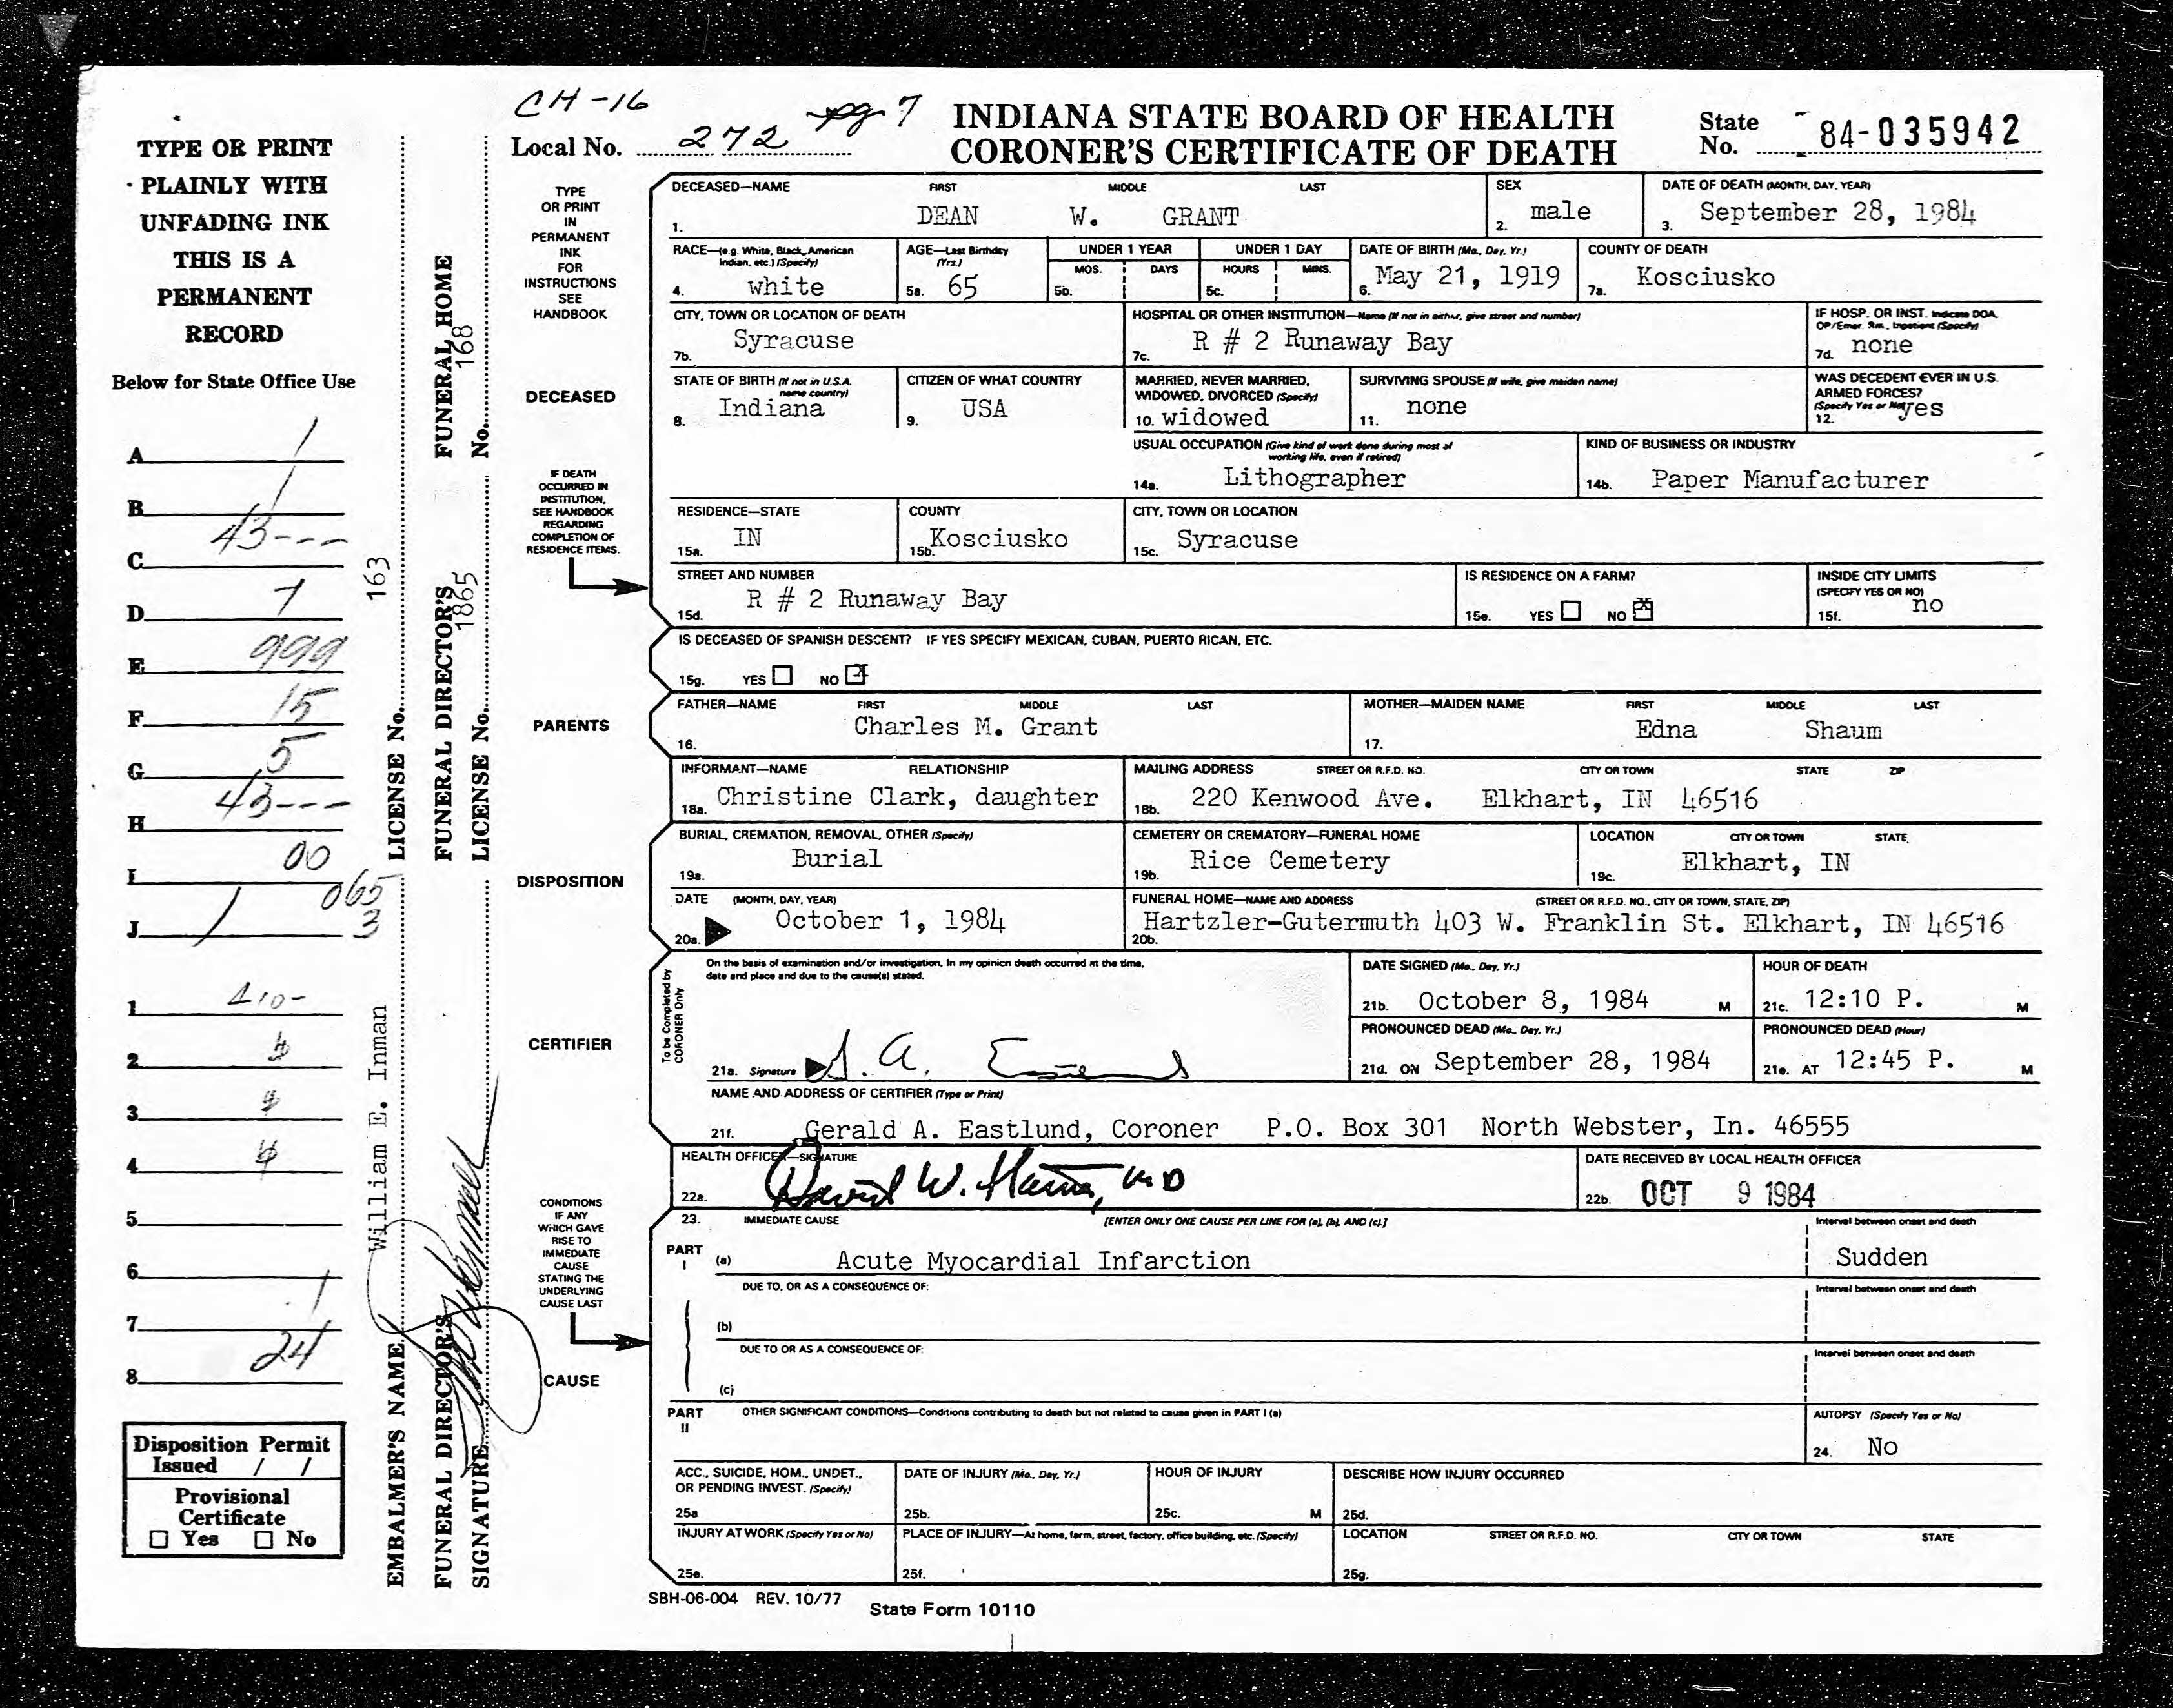 CH-16
Local No. 272 pg 7
INDIANA STATE BOARD OF HEALTH
CORONER'S CERTIFICATE OF DEATH
State No. 84-035942
TYPE OR PRINT
PLAINLY WITH
UNFADING INK
THIS IS A
PERMANENT
RECORD
Below for State Office Use
A 1
B 1
C 43---
D 7
E 999
F 15
G 5
H 43---
I 00
065
J 1 3
1 410-
2
3
4
5
6
7 1
8 24
Disposition Permit
Issued / /
Provisional
Certificate
Yes No
EMBALMER'S NAME William E. Inman LICENSE No. 163
FUNERAL DIRECTOR'S SIGNATURE
FUNERAL DIRECTOR'S LICENSE No. 1865
FUNERAL HOME No. 168
TYPE
OR PRINT
IN
PERMANENT
INK
FOR
INSTRUCTIONS
SEE
HANDBOOK
DECEASED
IF DEATH
OCCURRED IN
INSTITUTION,
SEE HANDBOOK
REGARDING
COMPLETION OF
RESIDENCE ITEMS.
PARENTS
DISPOSITION
CERTIFIER
CONDITIONS
IF ANY
WHICH GAVE
RISE TO
IMMEDIATE
CAUSE
STATING THE
UNDERLYING
CAUSE LAST
CAUSE
DECEASED—NAME FIRST MIDDLE LAST
1. DEAN W. GRANT
SEX
2. male
DATE OF DEATH (MONTH, DAY, YEAR)
3. September 28, 1984
RACE—(e.g. White, Black, American
Indian, etc.) (Specify)
4. white
AGE—Last Birthday
(Yrs.)
5a. 65
UNDER 1 YEAR
MOS. DAYS
5b.
UNDER 1 DAY
HOURS MINS.
5c.
DATE OF BIRTH (Mo., Day, Yr.)
6. May 21, 1919
COUNTY OF DEATH
7a. Kosciusko
CITY, TOWN OR LOCATION OF DEATH
7b. Syracuse
HOSPITAL OR OTHER INSTITUTION—Name (If not in either, give street and number)
7c. R # 2 Runaway Bay
IF HOSP. OR INST. Indicate DOA,
OP/Emer. Rm., Inpatient (Specify)
7d. none
STATE OF BIRTH (If not in U.S.A.
name country)
8. Indiana
CITIZEN OF WHAT COUNTRY
9. USA
MARRIED, NEVER MARRIED,
WIDOWED, DIVORCED (Specify)
10. widowed
SURVIVING SPOUSE (If wife, give maiden name)
11. none
WAS DECEDENT EVER IN U.S.
ARMED FORCES?
(Specify Yes or No)
12. yes
USUAL OCCUPATION (Give kind of work done during most of
working life, even if retired)
14a. Lithographer
KIND OF BUSINESS OR INDUSTRY
14b. Paper Manufacturer
RESIDENCE—STATE
15a. IN
COUNTY
15b. Kosciusko
CITY, TOWN OR LOCATION
15c. Syracuse
STREET AND NUMBER
15d. R # 2 Runaway Bay
IS RESIDENCE ON A FARM?
15e. YES NO X
INSIDE CITY LIMITS
(SPECIFY YES OR NO)
15f. no
IS DECEASED OF SPANISH DESCENT? IF YES SPECIFY MEXICAN, CUBAN, PUERTO RICAN, ETC.
15g. YES NO X
FATHER—NAME FIRST MIDDLE LAST
16. Charles M. Grant
MOTHER—MAIDEN NAME FIRST MIDDLE LAST
17. Edna Shaum
INFORMANT—NAME RELATIONSHIP
18a. Christine Clark, daughter
MAILING ADDRESS STREET OR R.F.D. NO. CITY OR TOWN STATE ZIP
18b. 220 Kenwood Ave. Elkhart, IN 46516
BURIAL, CREMATION, REMOVAL, OTHER (Specify)
19a. Burial
CEMETERY OR CREMATORY—FUNERAL HOME
19b. Rice Cemetery
LOCATION CITY OR TOWN STATE
19c. Elkhart, IN
DATE (MONTH, DAY, YEAR)
20a. October 1, 1984
FUNERAL HOME—NAME AND ADDRESS (STREET OR R.F.D. NO., CITY OR TOWN, STATE, ZIP)
20b. Hartzler-Gutermuth 403 W. Franklin St. Elkhart, IN 46516
To be Completed by
CORONER Only
On the basis of examination and/or investigation, in my opinion death occurred at the time,
date and place and due to the cause(s) stated.
21a. Signature
DATE SIGNED (Mo., Day, Yr.)
21b. October 8, 1984 M
HOUR OF DEATH
21c. 12:10 P. M
PRONOUNCED DEAD (Mo., Day, Yr.)
21d. ON September 28, 1984
PRONOUNCED DEAD (Hour)
21e. AT 12:45 P. M
NAME AND ADDRESS OF CERTIFIER (Type or Print)
21f. Gerald A. Eastlund, Coroner P.O. Box 301 North Webster, In. 46555
HEALTH OFFICER—SIGNATURE
22a. David W. Haines, MD
DATE RECEIVED BY LOCAL HEALTH OFFICER
22b. OCT 9 1984
23. IMMEDIATE CAUSE [ENTER ONLY ONE CAUSE PER LINE FOR (a), (b), AND (c).]
PART I (a) Acute Myocardial Infarction
Interval between onset and death
Sudden
DUE TO, OR AS A CONSEQUENCE OF:
Interval between onset and death
(b)
DUE TO OR AS A CONSEQUENCE OF:
Interval between onset and death
(c)
PART II OTHER SIGNIFICANT CONDITIONS—Conditions contributing to death but not related to cause given in PART I (a)
AUTOPSY (Specify Yes or No)
24. No
ACC., SUICIDE, HOM., UNDET.,
OR PENDING INVEST. (Specify)
25a
DATE OF INJURY (Mo., Day, Yr.)
25b.
HOUR OF INJURY
25c. M
DESCRIBE HOW INJURY OCCURRED
25d.
INJURY AT WORK (Specify Yes or No)
25e.
PLACE OF INJURY—At home, farm, street, factory, office building, etc. (Specify)
25f.
LOCATION STREET OR R.F.D. NO. CITY OR TOWN STATE
25g.
SBH-06-004 REV. 10/77
State Form 10110